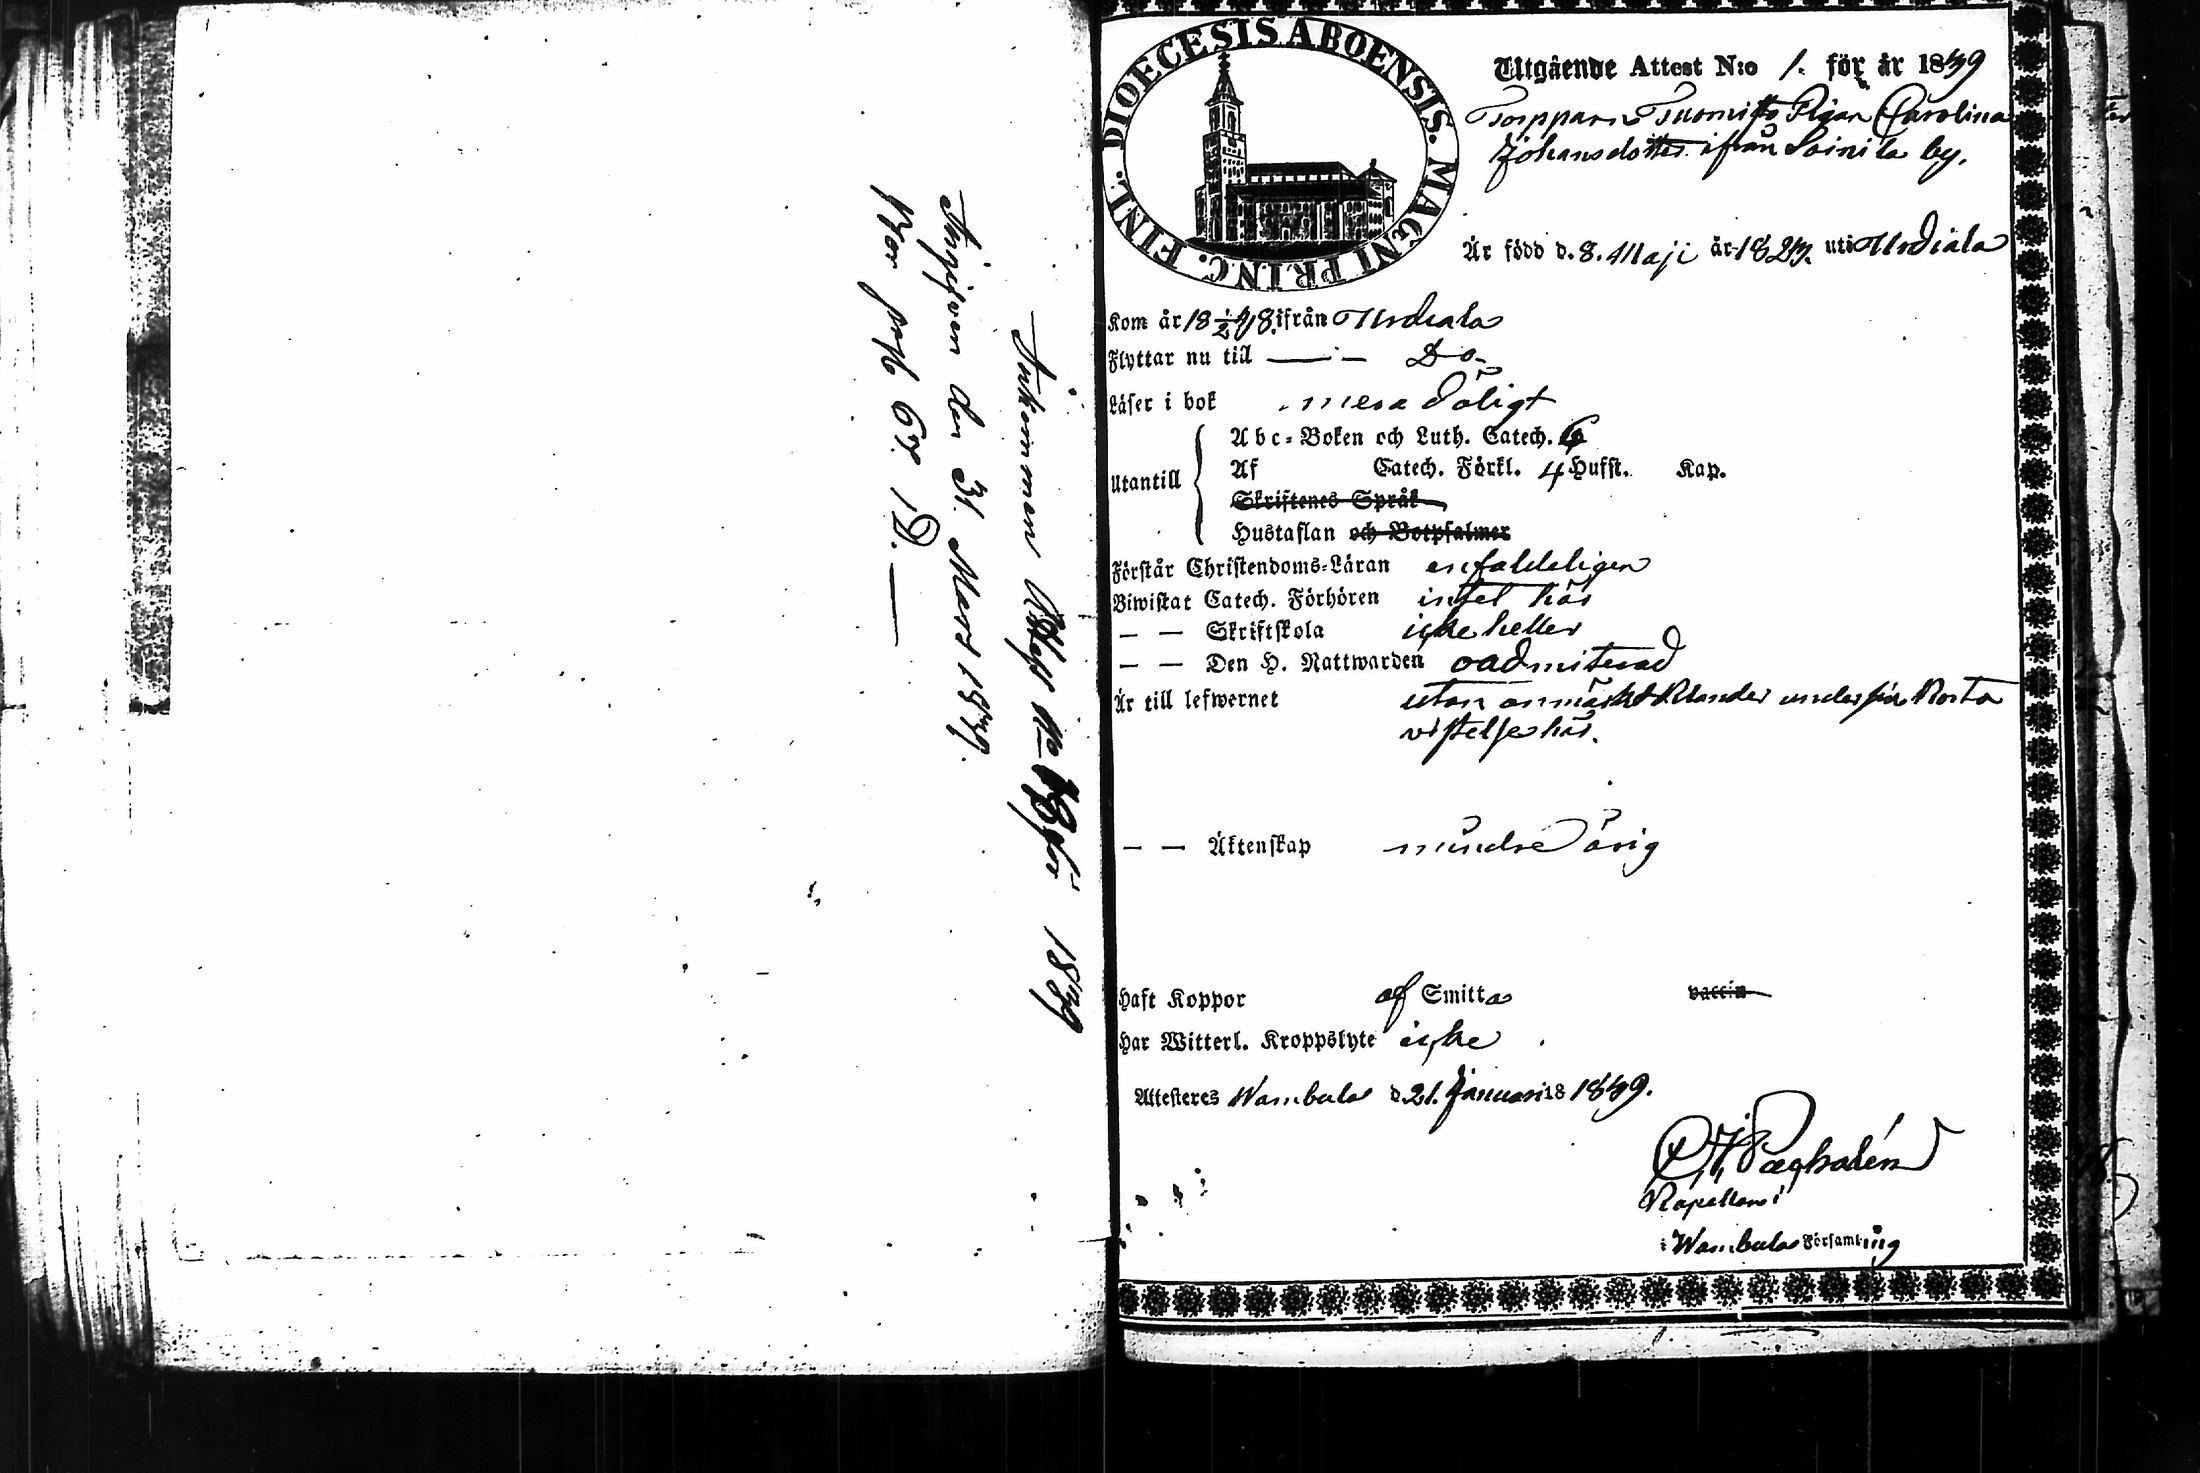 Inkommen Attest No 1839
Angifven den 31. Mars 1839.
Nor pag 67. D.
DIOECESIS ABOENSIS. MAGNI PRINC. FINL.
Utgående Attest N:o 1. för år 1839
Torppare Tuomisto Pigan Carolina
Johansdotter ifrån Soinila by.
Är född d. 8. Maji år 1823. uti Urdiala
Kom år 18 ifrån Urdiala
Flyttar nu till — Do
Läser i bok mera dåligt
Abc-Boken och Luth. Catech. 6
Utantill Af Catech. Förkl. 4 Hufst. Kap.
Skriftenes Språk
Hustaflan och Botpsalmer
Förstår Christendoms-Läran enfaldeligen
Biwistat Catech. Förhören intet här
— — Skriftskola icke heller
— — Den H. Nattwarden oadmiterad
Är till lefwernet utan anmärkt klander under sin korta
vistelse här.
— — Äktenskap mindre årig
Haft Koppor af Smitta vaccin
Har Witterl. Kroppslyte icke
Attesteres Wambula d. 21. Januari 18 1839.
Kapellan i
i Wambula Församling